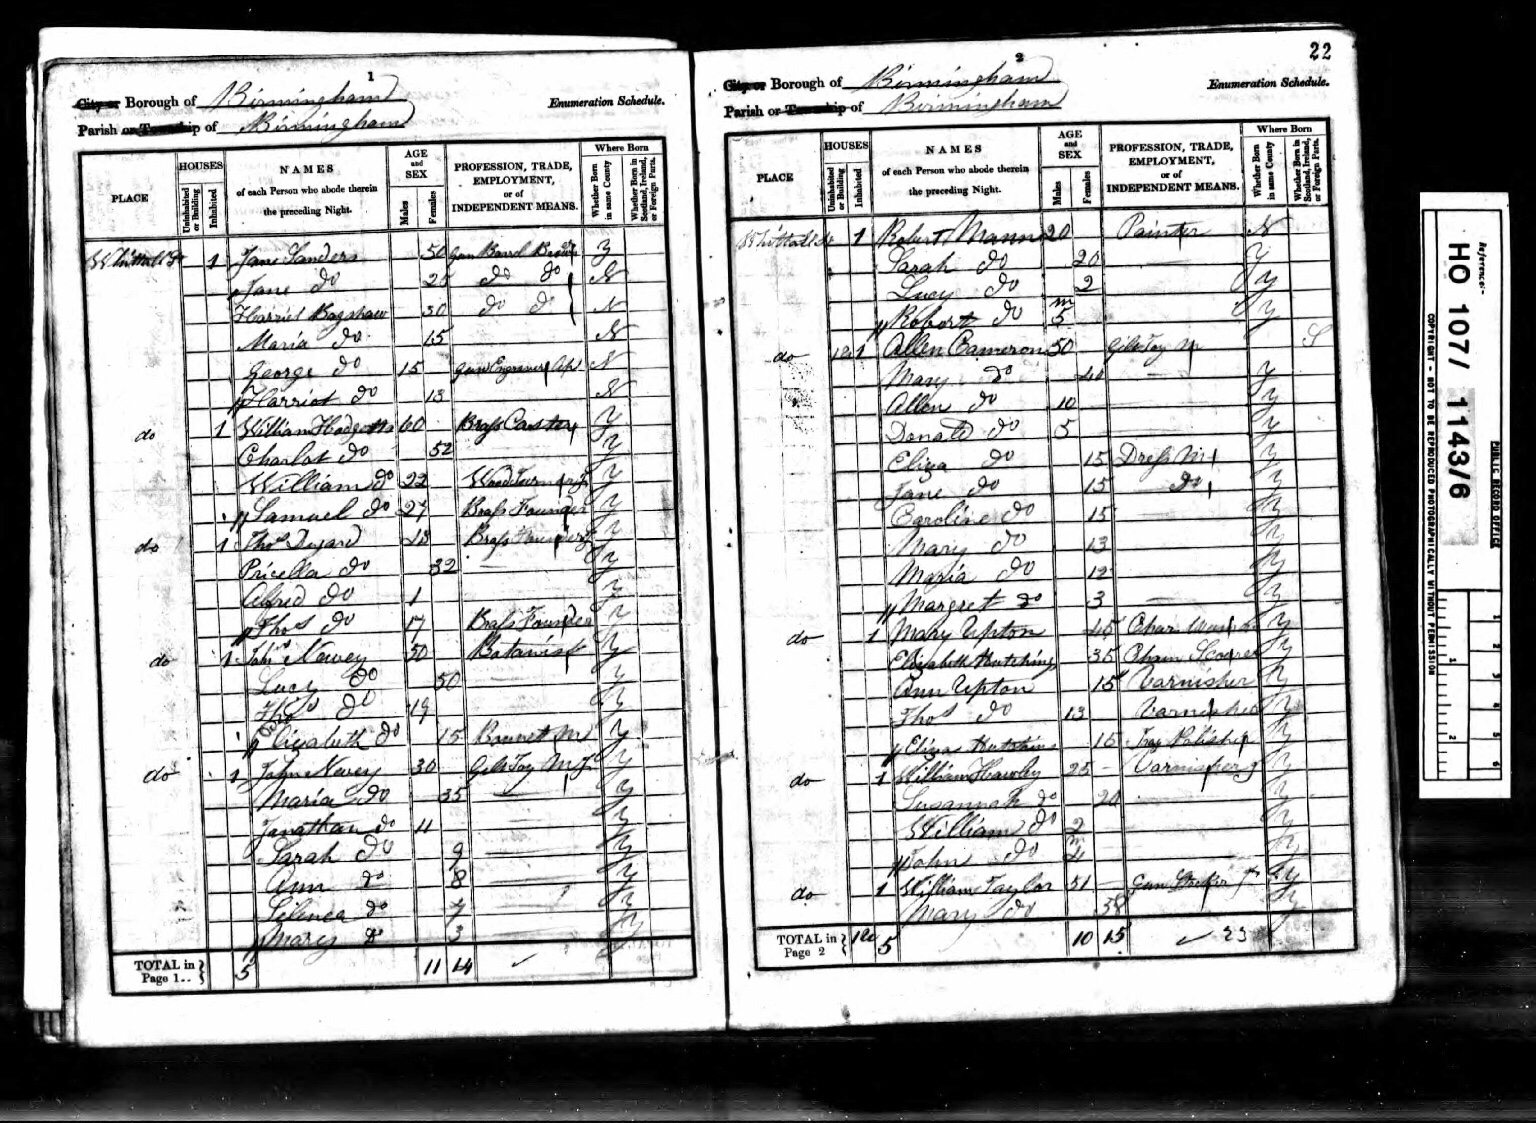 1
City or Borough of Birmingham
Enumeration Schedule.
Parish or Township of Birmingham
PLACE
HOUSES
Uninhabited or Building
Inhabited
NAMES
of each Person who abode therein
the preceding Night.
AGE and SEX
Males
Females
PROFESSION, TRADE,
EMPLOYMENT,
or of
INDEPENDENT MEANS.
Where Born
Whether Born in same County
Whether Born in Scotland, Ireland, or Foreign Parts.
Whittall St 1 Jane Sanders 50 Gun Barrel Y
Jane do do do N
Harriet Bagshaw 30 do do N
Maria do 15 N
George do 15 Gun Engraver Ap N
Harriot do 13 N
do 1 William Hodgetts 60 Brass Caster Y
Charlot do 52 Y
William do 22 Wood Turner J Y
Samuel do 27 Brass Founder Y
do 1 Thos Brass Founder Y
Pricella do 32 Y
Alfred do 1 Y
Thos do 17 Brass Founder Y
do 1 John Newey 50 Botanist Y
Lucy do 50 Y
Thos do 19 Y
Elizabeth do 15 Bonnet M Y
do 1 John Newey 30 Gilt Toy M J Y
Maria do 35 Y
Jonathan do 11 Y
Sarah do 9 Y
Ann do 8 Y
Silenea do 7 Y
Mary do 3 Y
TOTAL in Page 1.. 5 11 14
22
2
City or Borough of Birmingham
Enumeration Schedule.
Parish or Township of Birmingham
PLACE
HOUSES
Uninhabited or Building
Inhabited
NAMES
of each Person who abode therein
the preceding Night.
AGE and SEX
Males
Females
PROFESSION, TRADE,
EMPLOYMENT,
or of
INDEPENDENT MEANS.
Where Born
Whether Born in same County
Whether Born in Scotland, Ireland, or Foreign Parts.
Whittall St 1 Robert Mann 20 Painter N
Sarah do 20 Y
Lucy do 2 Y
Robert do 5 m Y
do 1 Allen Cameron 50 Gilt Toy M S
Mary do 40 Y
Allen do 10 Y
Donald do 5 Y
Eliza do 15 Dress M Y
Jane do 15 do Y
Caroline do 15 Y
Mary do 13 Y
Maria do 12 Y
Margret do 3 Y
do 1 Mary Upton 45 Char Y
Elizabeth Hutchins 35 Y
Ann Upton 15 Varnisher Y
Thos do 13 Varnisher Y
Eliza Hutchins 15 Tray Polisher Y
do 1 William Hawley 25 Varnisher J Y
Susannah do 20 Y
William do 2 Y
John do m Y
do 1 William Taylor 51 Gun Y
Mary do 38 Y
TOTAL in Page 2 5 10 15
Reference:-
HO 107/ 1143/6
PUBLIC RECORD OFFICE
COPYRIGHT - NOT TO BE REPRODUCED PHOTOGRAPHICALLY WITHOUT PERMISSION
1 2 3 4 5 6
1 2